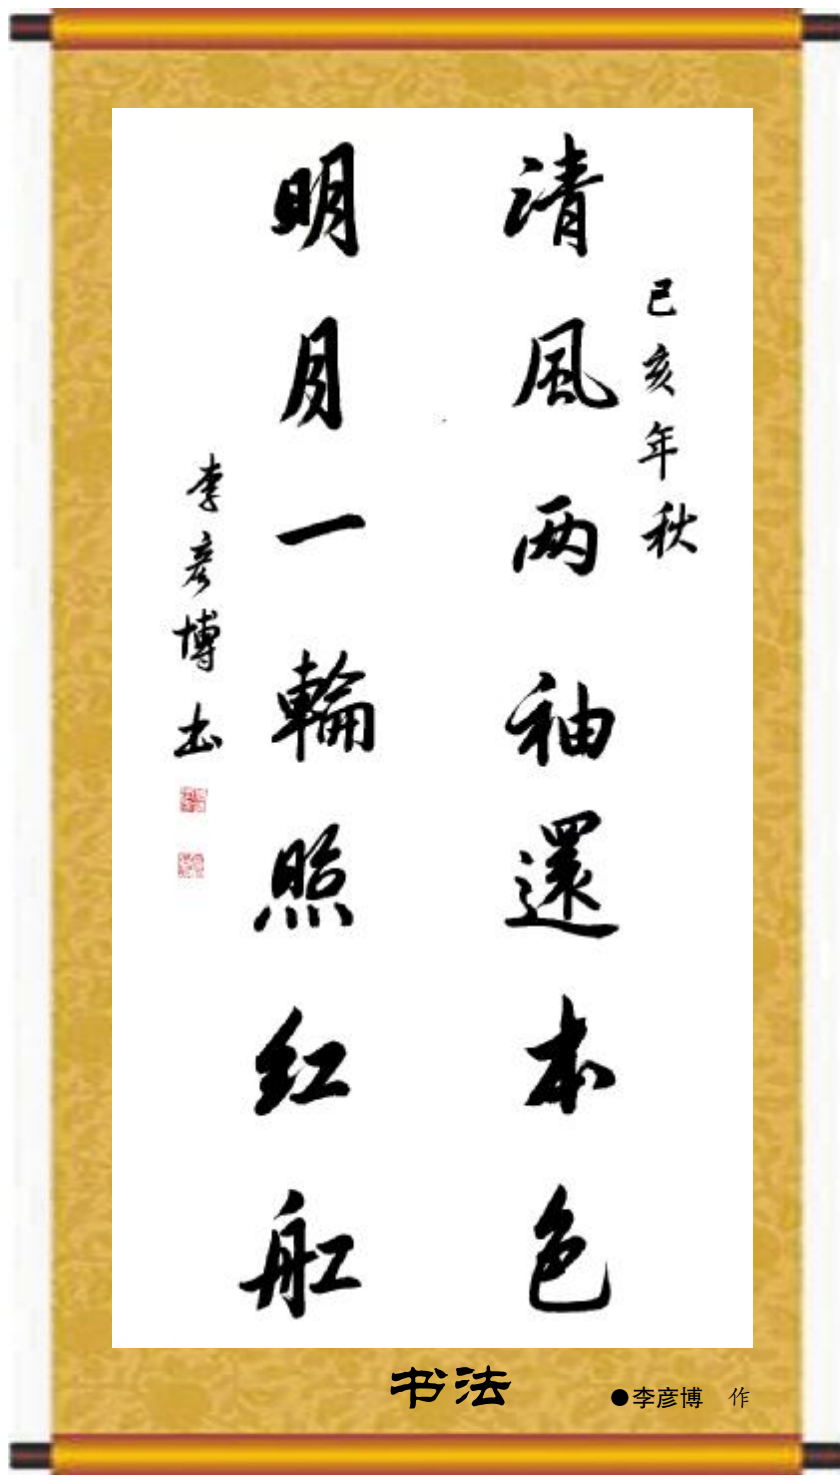 己亥年秋
清風两袖還本色
明月一輪照紅舡
李彦博书
书法
●李彦博 作